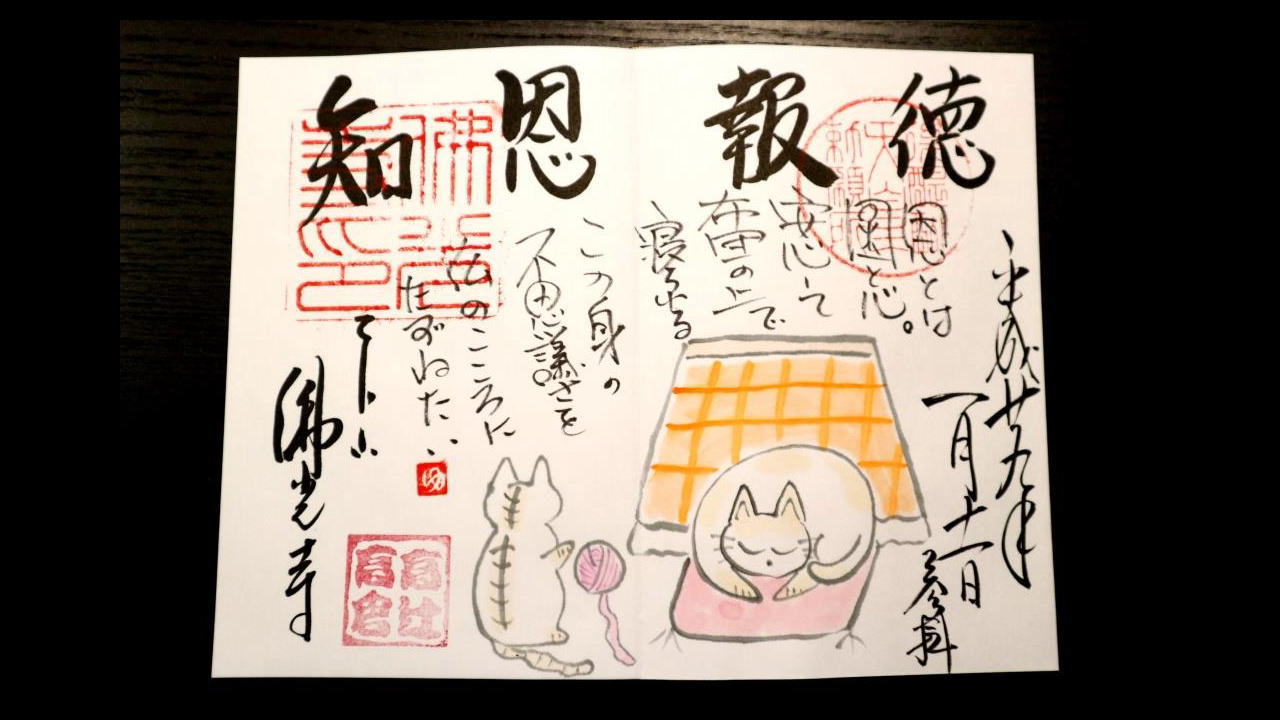 知恩報徳
平成廿九年
一月十一日
参拝
恩とは
因と心。
安心して
布団の上で
寝られる
この身の
不思議さを
仏のこころに
たずねたい
佛光寺